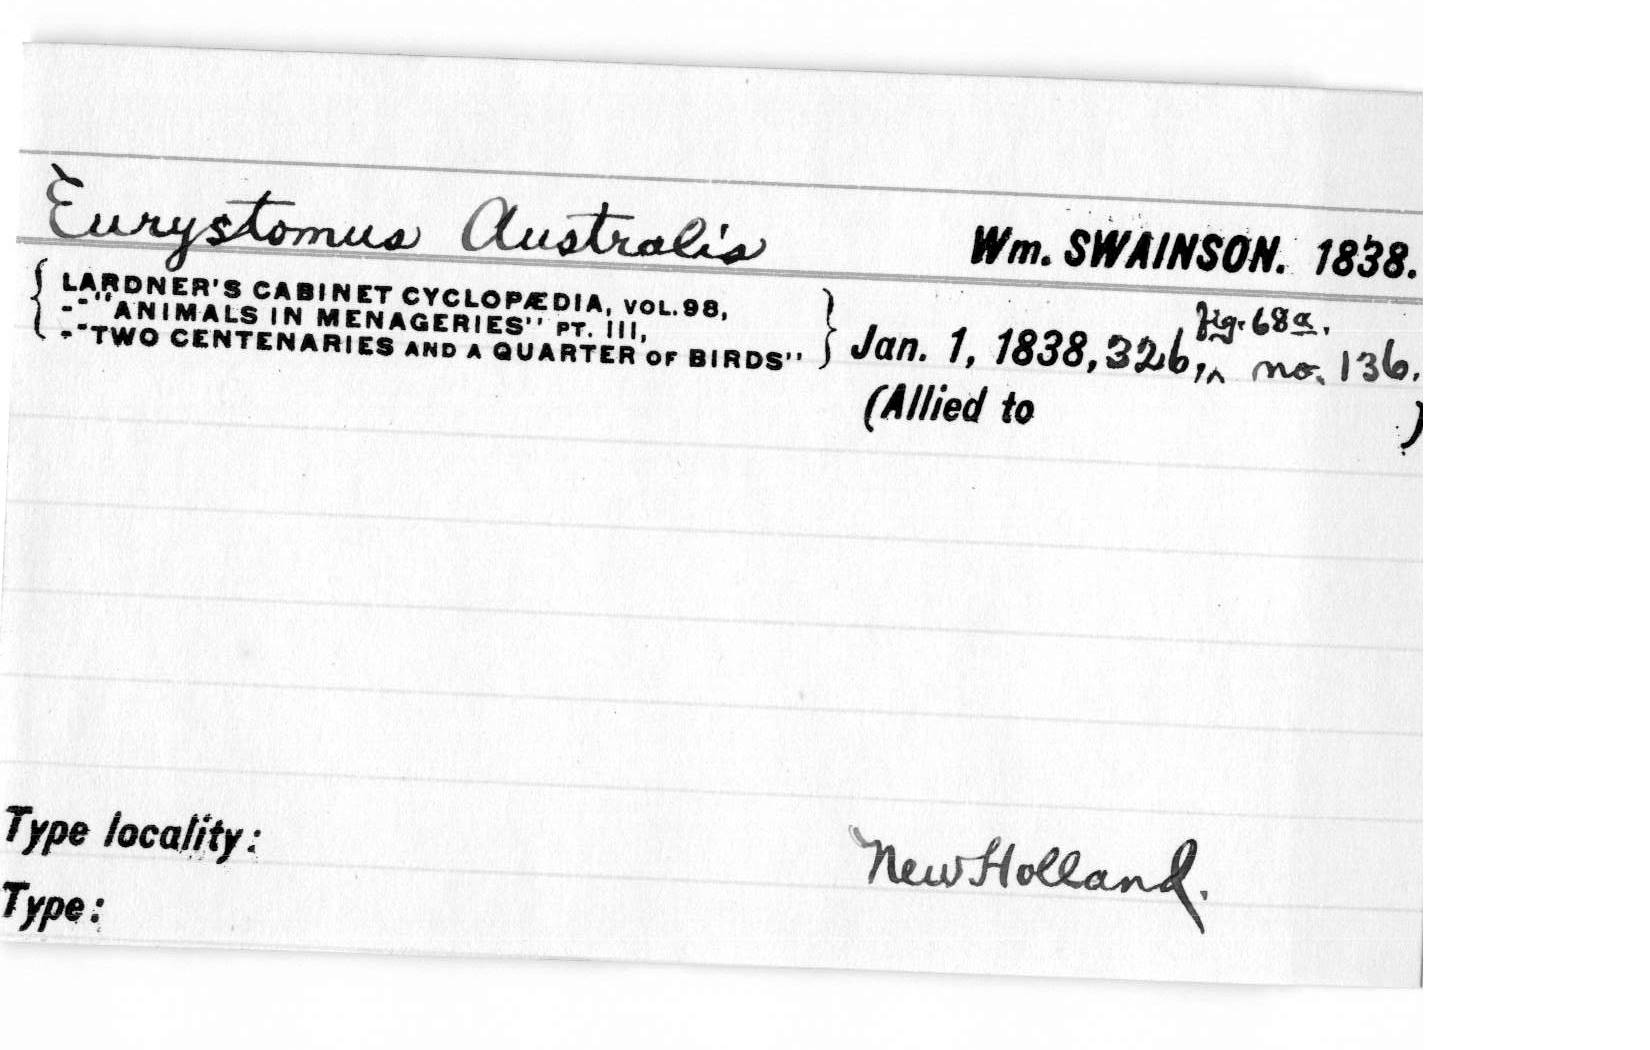 Eurystomus Australis Wm. SWAINSON. 1838.
{ LARDNER'S CABINET CYCLOPÆDIA, VOL. 98,
-"ANIMALS IN MENAGERIES" PT. III,
-"TWO CENTENARIES AND A QUARTER OF BIRDS" } Jan. 1, 1838, 326, ^ fig. 68a. no. 136.
(Allied to )
Type locality: New Holland.
Type: